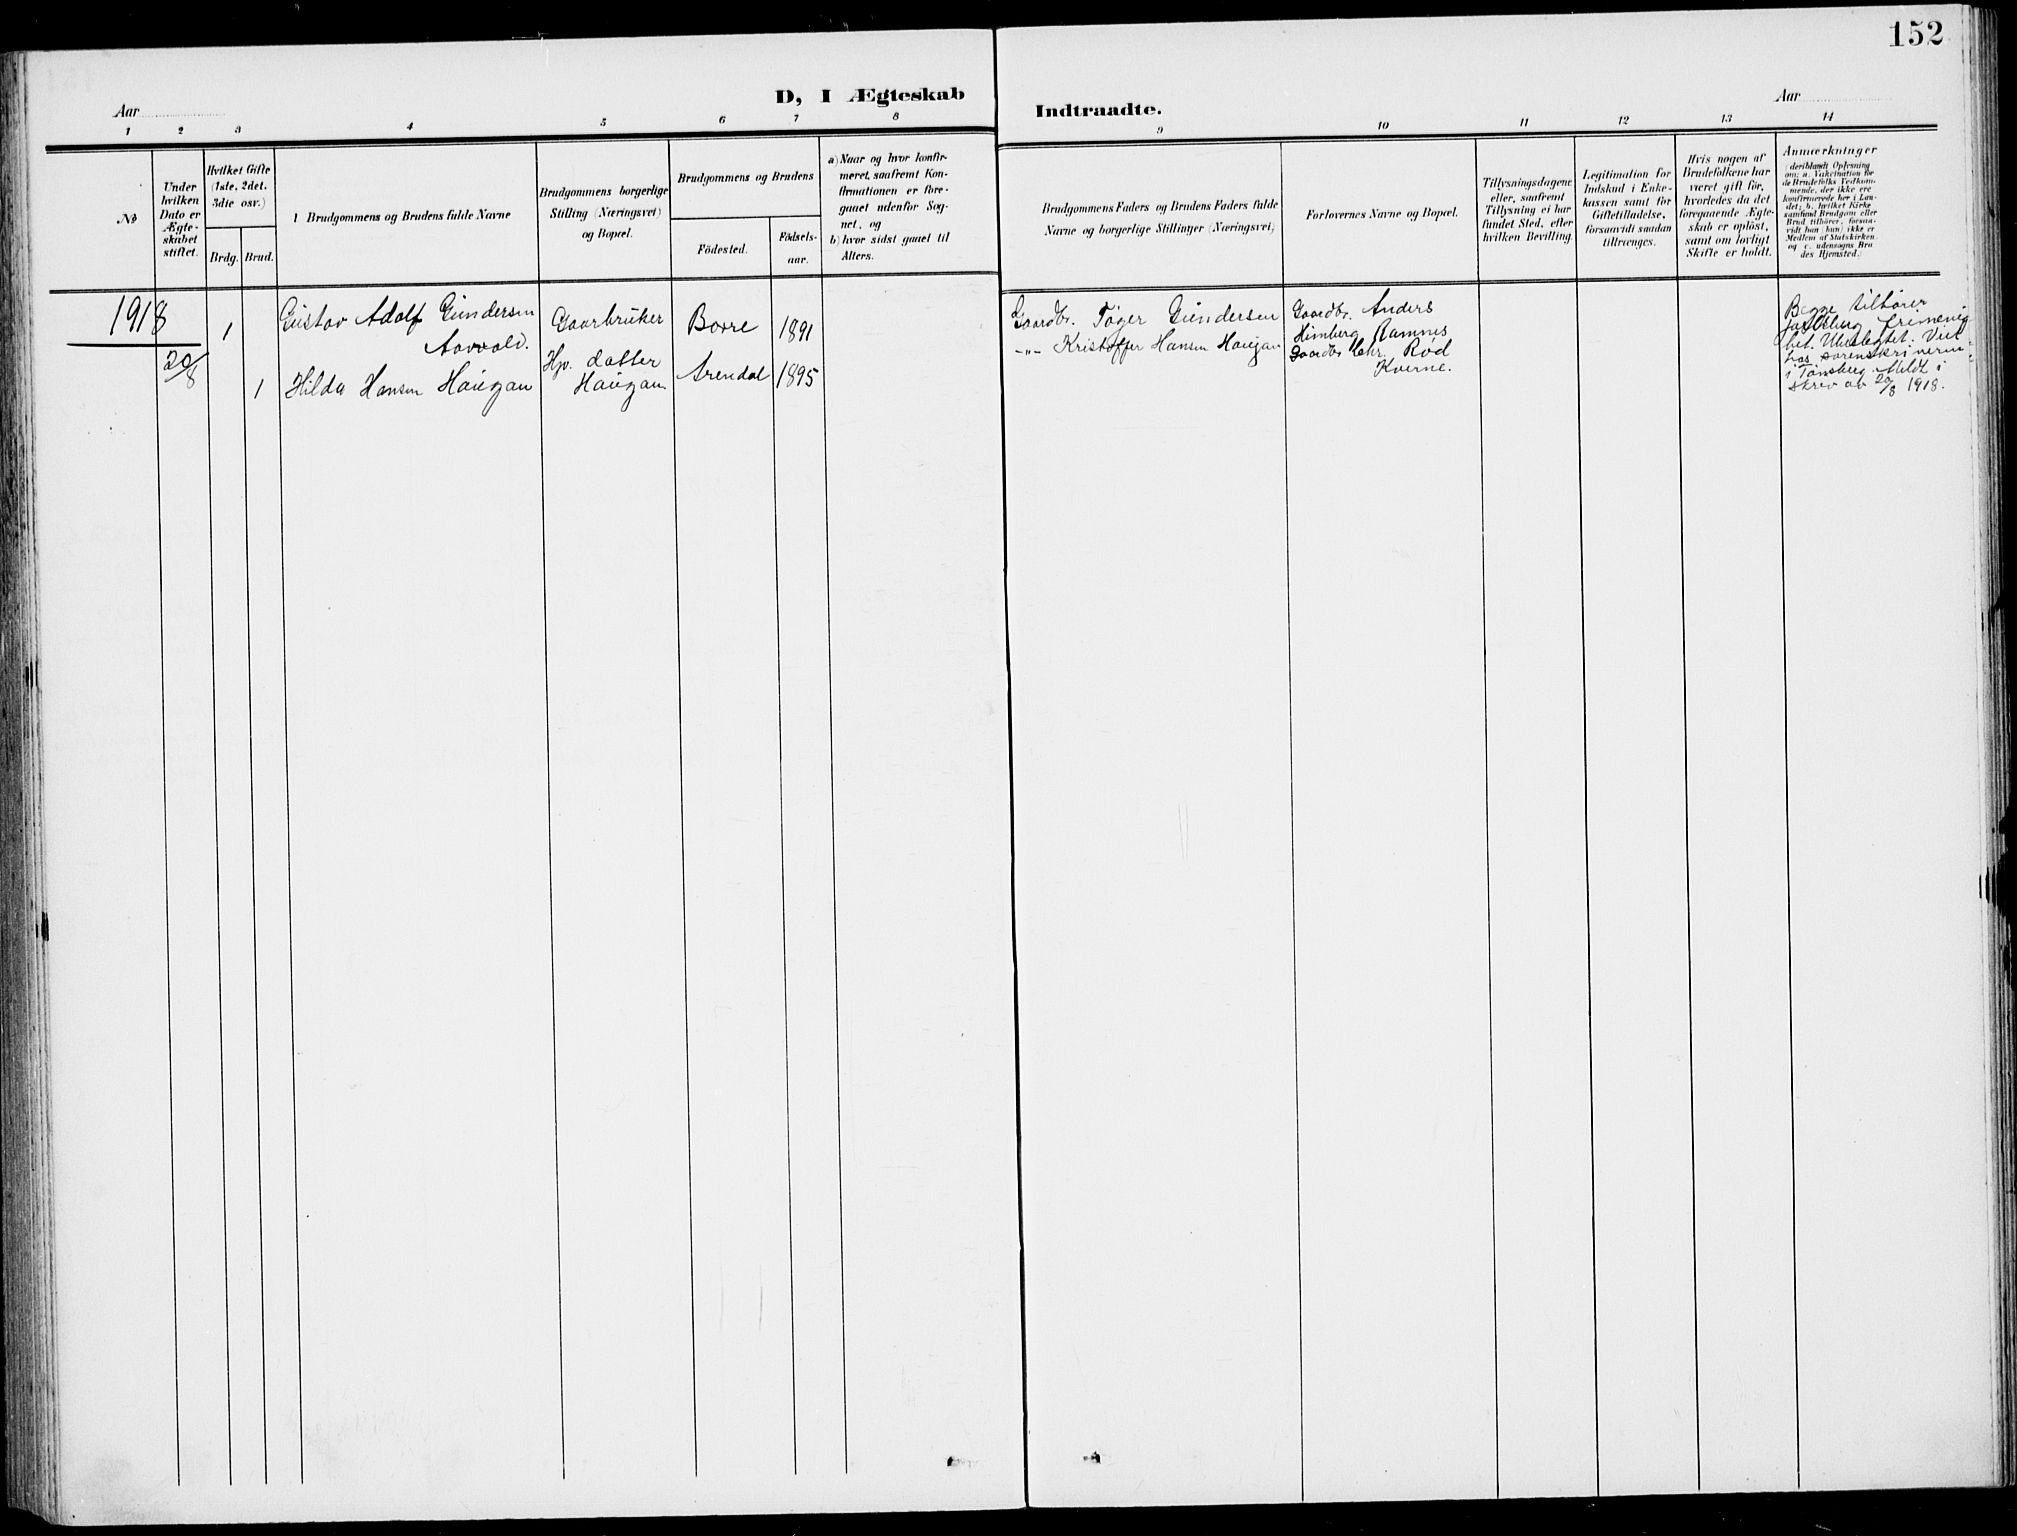 152
Aar
D, I Ægteskab
Indtraadte.
Aar
1 2 3 4 5 6 7 8
9 10 11 12 13 14
No
Under
hvilken
Dato er
Ægte-
skabet
stiftet.
Hvilket Gifte
(1ste, 2det,
3die osv.)
Brdg. Brud.
1 Brudgommens og Brudens fulde Navne
Brudgommens borgerlige
Stilling (Næringsvei)
og Bopæl.
Brudgommens og Brudens
Födested.
Födsels-
aar.
a) Naar og hvor konfir-
meret, saafremt Kon-
firmationen er fore-
gaaet udenfor Sog-
net, og
b) hvor sidst gaaet til
Alters.
Brudgommens Faders og Brudens Faders fulde
Navne og borgerlige Stillinger (Næringsvei)
Forlovernes Navne og Bopæl.
Tillysningsdagene
eller, saafremt
Tillysning ei har
fundet Sted, efter
hvilken Bevilling.
Legitimation for
Indskud i Enke-
kassen samt for
Giftetilladelse,
forsaavidt saadan
tiltrænges.
Hvis nogen af
Brudefolkene har
været gift för,
hvorledes da det
foregaaende Ægte-
skab er oplöst,
samt om lovligt
Skifte er holdt.
Anmærkninger
(deriblandt Oplysning
om: a. Vakcination for
de Brudefolks Vedkom-
mende, der ikke ere
konfirmerede her i Lan-
det; b. hvilket Kirke
samfund Brudgom eller
Brud tilhörer, forsaa-
vidt han (hun) ikke er
Medlem af Statskirken.
og c. udensogns Bru
des Hjemsted.)
1918
20/8
1
Gustav Adolf Gundersen
Gaarbruker
Borre
1891
1
Hilda Hansen Haugan
Hp. datter
Haugan.
Arendal
1895
Gaardbr. Tøger Gundersen
-"- Kristoffer Hansen Haugan
Gaardbr. Anders
Himberg Ramnes
Gaardbr Chr. Rød
Kverne.
Begge tilhører
Viet
hos sorenskriveren
i Tønsberg. Meldt i
skriv av 20/8 1918.